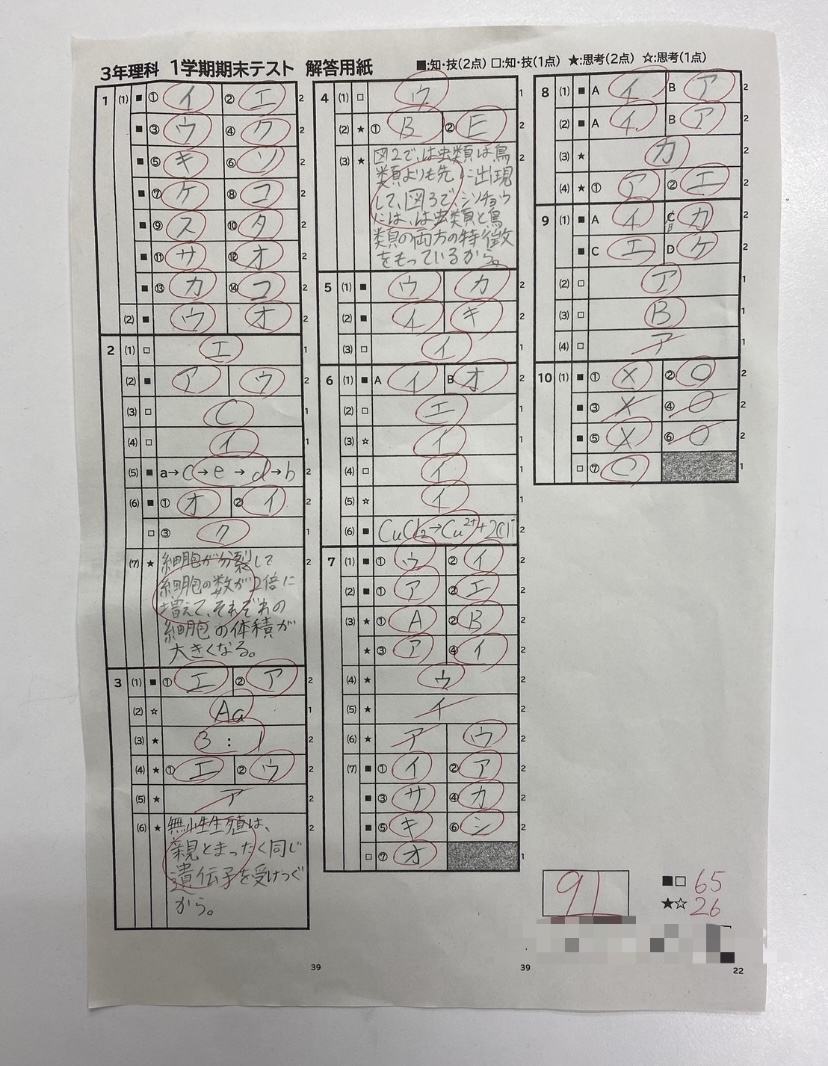 3年理科 1学期期末テスト 解答用紙
■:知・技(2点) □:知・技(1点) ★:思考(2点) ☆:思考(1点)
1 (1) ■ ① イ ② エ 2
■ ③ ウ ④ ク 2
■ ⑤ キ ⑥ ソ 2
■ ⑦ ケ ⑧ コ 2
■ ⑨ ス ⑩ タ 2
■ ⑪ サ ⑫ オ 2
■ ⑬ カ ⑭ コ 2
(2) ■ ウ オ 2
2 (1) □ エ 1
(2) ■ ア ウ 2
(3) □ C 1
(4) □ イ 1
(5) ■ a→c→e→d→b 2
(6) ■ ① オ ② イ 2
□ ③ ク 1
(7) ★ 細胞が分裂して 2
細胞の数が2倍に
増えて、それぞれの
細胞の体積が
大きくなる。
3 (1) ■ ① エ ② ア 2
(2) ☆ Aa 1
(3) ★ 3:1 2
(4) ★ ① エ ② ウ 2
(5) ★ ア 2
(6) ★ 無性生殖は、 2
親とまったく同じ
遺伝子を受けつぐ
から。
39
4 (1) □ ウ 1
(2) ★ ① B ② E 2
(3) ★ 図2で、は虫類は鳥 2
類よりも先に出現
して、図3で、シソチョウ
には、は虫類と鳥
類の両方の特徴
をもっているから。
5 (1) ■ ウ カ 2
(2) ■ イ キ 2
(3) □ イ 1
6 (1) ■ A イ B オ 2
(2) □ エ 1
(3) ☆ イ 1
(4) □ イ 1
(5) ☆ イ 1
(6) ■ CuCl₂→Cu²⁺+2Cl⁻ 2
7 (1) ■ ① ウ ② イ 2
(2) ■ ① ア ② エ 2
(3) ★ ① A ② B 2
★ ③ ア ④ イ 2
(4) ★ ウ 2
(5) ★ イ 2
(6) ★ ア ウ 2
(7) ■ ① イ ② ア 2
■ ③ サ ④ カ 2
■ ⑤ キ ⑥ シ 2
□ ⑦ オ 1
39
8 (1) ■ A イ B ア 2
(2) ■ A イ B ア 2
(3) ★ カ 2
(4) ★ ① ア ② エ 2
9 (1) ■ A イ B カ 2
■ C エ D ケ 2
(2) □ ア 1
(3) □ B 1
(4) □ ア 1
10 (1) ■ ① × ② ○ 2
■ ③ × ④ ○ 2
■ ⑤ × ⑥ ○ 2
□ ⑦ ○ 1
91
■□ 65
★☆ 26
22